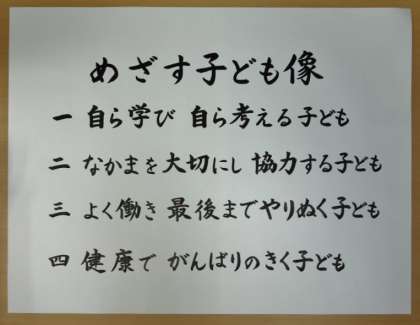 めざす子ども像
一 自ら学び 自ら考える子ども
二 なかまを大切にし 協力する子ども
三 よく働き 最後までやりぬく子ども
四 健康で がんばりのきく子ども